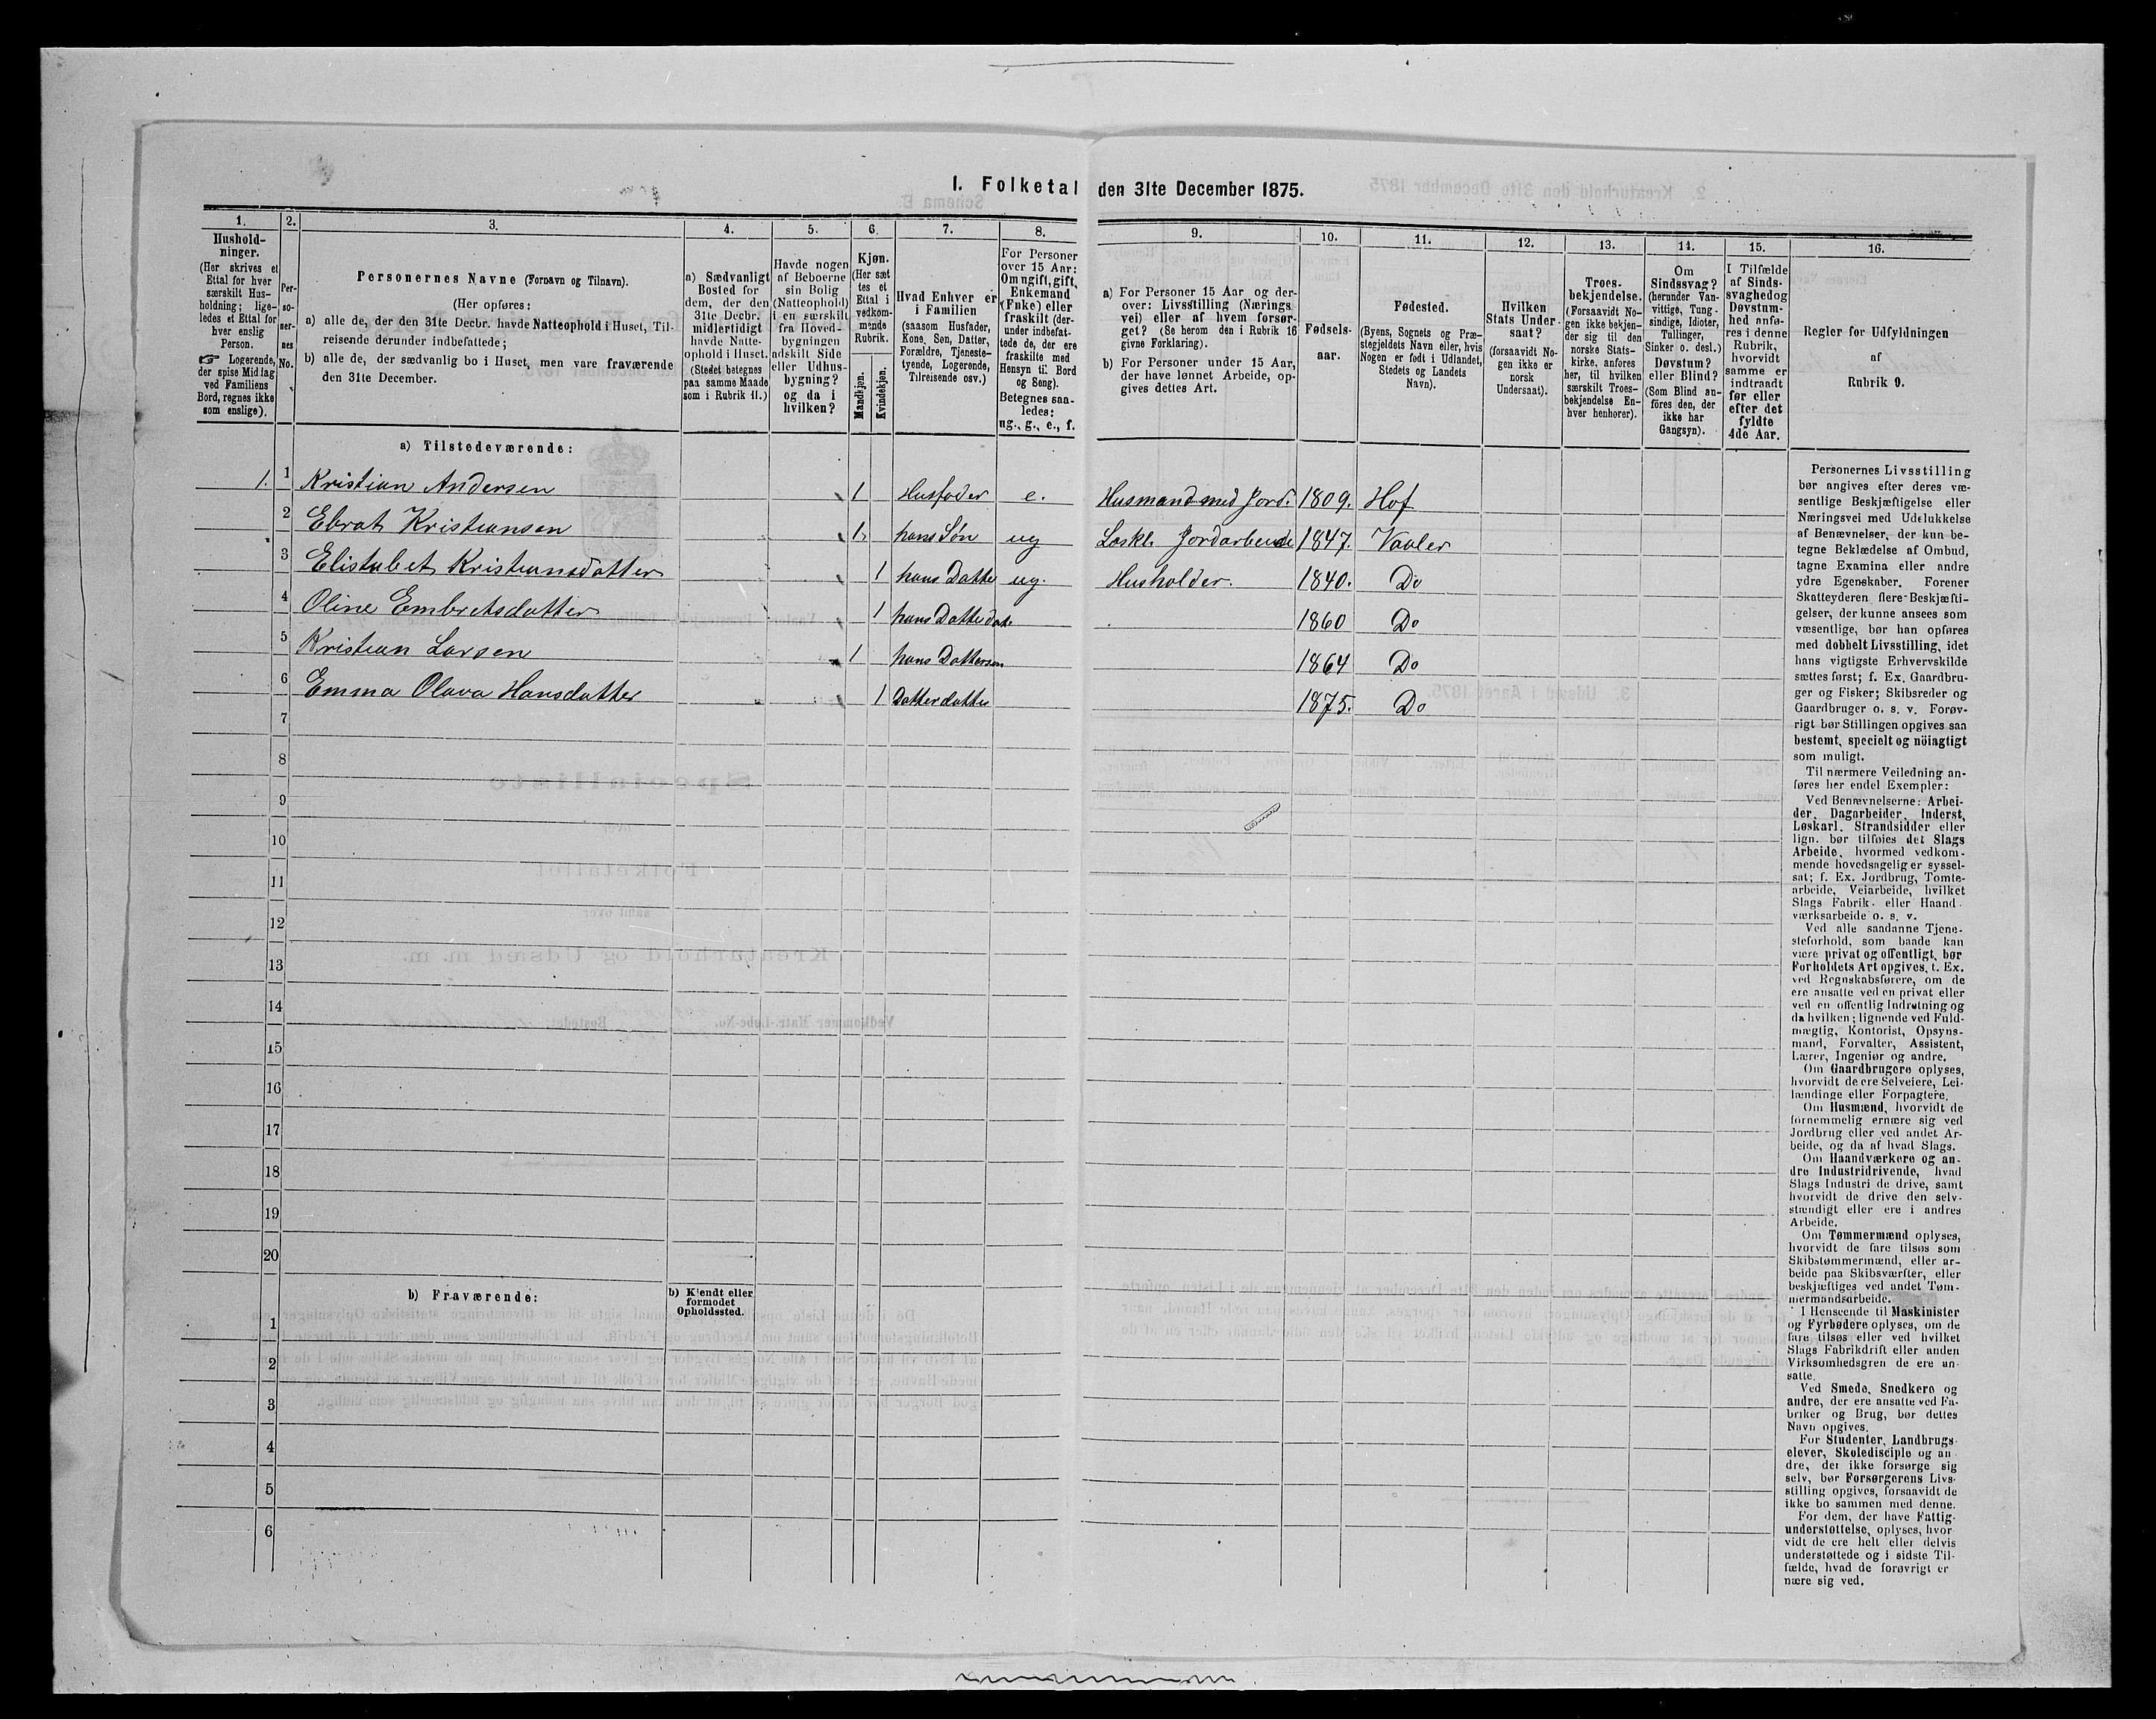 I. Folketal den 31te December 1875.
1. 2. 3. 4. 5. 6. 7. 8. 9. 10. 11. 12. 13. 14. 15. 16.
Hushold-
ninger.
(Her skrives et
Ettal for hver
særskilt Hus-
holdning; lige-
ledes et Ettal for
hver enslig
Person.
☞ Logerende,
der spise Middag
ved Familiens
Bord, regnes ikke
som enslige).
Per-
so-
ner-
nes
No.
Personernes Navne (Fornavn og Tilnavn).
(Her opføres:
a) alle de, der den 31te Decbr. havde Natteophold i Huset, Til-
reisende derunder indbefattede;
b) alle de, der sædvanlig bo i Huset, men vare fraværende
den 31te December.
a) Sædvanligt
Bosted for
dem, der den
31te Decbr.
midlertidigt
havde Natte-
ophold i Huset.
(Stedet betegnes
paa samme Maade
som i Rubrik 11.)
Havde nogen
af Beboerne
sin Bolig
(Natteophold)
i en særskilt
fra Hoved-
bygningen
adskilt Side
eller Udhus-
bygning?
og da i
hvilken?
Kjøn.
(Her sæt
tes et
Ettal i
vedkom-
mende
Rubrik.
Mandkjøn.
Kvindekjøn.
Hvad Enhver er
i Familien
(saasom Husfader,
Kone, Søn, Datter,
Forældre, Tjeneste-
tyende, Logerende,
Tilreisende osv.)
For Personer
over 15 Aar:
Om ugift, gift,
Enkemand
(Enke) eller
fraskilt (der-
under indbefat-
tede de, der ere
fraskilte med
Hensyn til Bord
og Seng).
Betegnes saa-
ledes:
ug., g., e., f.
a) For Personer 15 Aar og der-
over: Livsstilling (Nærings
vei) eller af hvem forsør-
get? (Se herom den i Rubrik 16
givne Forklaring).
b) For Personer under 15 Aar,
der have lønnet Arbeide, op-
gives dettes Art.
Fødsels-
aar.
Fødested.
(Byens, Sognets og Præ-
stegjeldets Navn eller, hvis
Nogen er født i Udlandet,
Stedets og Landets
Navn).
Hvilken
Stats Under-
saat?
(forsaavidt No-
gen ikke er
norsk
Undersaat).
Troes-
bekjendelse.
(Forsaavidt No-
gen ikke bekjen-
der sig til den
norske Stats-
kirke, anføres
her, til hvilken
særskilt Troes-
bekjendelse En-
hver henhører).
Om
Sindssvag?
(herunder Van-
vittige, Tung-
sindige, Idioter,
Tullinger,
Sinker o. desl.)
Døvstum?
eller Blind?
(Som Blind an-
föres den, der
ikke har
Gangsyn).
I Tilfælde
af Sinds-
svaghed og
Døvstum-
hed anfø-
res i denne
Rubrik,
hvorvidt
samme er
indtraadt
før eller
efter det
fyldte
4de Aar.
Regler for Udfyldningen
af
Rubrik 9.
a) Tilstedeværende:
1. 1 Kristian Andersen 1 Husfader e. Husmand med Jord. 1809. Hof
2 Ebrat Kristiansen 1. hans Søn ug Løskl. Jordarbeide 1847. Vaaler
3 Elisabet Kristiansdatter 1 hans Datter ug. Husholder. 1840. Do
4 Oline Embretsdatter 1 hans Datterdat. 1860 Do
5 Kristian Larsen 1 hans Dattersøn 1864 Do
6 Emma Olava Hansdatter 1 Datterdatter 1875. Do
7
8
9
10
11
12
13
14
15
16
17
18
19
20
b) Fraværende:
b) Kjendt eller
formodet
Opholdssted.
1
2
3
4
5
6
Personernes Livsstilling
bør angives efter deres væ-
sentlige Beskjæftigelse eller
Næringsvei med Udelukkelse
af Benævnelser, der kun be-
tegne Beklædelse af Ombud,
tagne Examina eller andre
ydre Egenskaber. Forener
Skatteyderen flere Beskjæfti-
gelser, der kunne ansees som
væsentlige, bør han opføres
med dobbelt Livsstilling, idet
hans vigtigste Erhvervskilde
sættes først; f. Ex. Gaardbru-
ger og Fisker; Skibsreder og
Gaardbruger o. s. v. Forøv-
rigt bør Stillingen opgives saa
bestemt, specielt og nöiagtigt
som muligt.
Til nærmere Veiledning an-
føres her endel Exempler:
Ved Benævnelserne: Arbei-
der, Dagarbeider, Inderst,
Løskarl, Strandsidder eller
lign. bør tilføies det Slags
Arbeide, hvormed vedkom-
mende hovedsagelig er syssel-
sat; f. Ex. Jordbrug, Tomte-
arbeide, Veiarbeide, hvilket
Slags Fabrik- eller Haand-
værksarbeide o. s. v.
Ved alle saadanne Tjene-
steforhold, som baade kan
være privat og offentligt, bør
Forholdets Art opgives, t. Ex.
ved Regnskabsførere, om de
ere ansatte ved en privat eller
ved en offentlig Indretning og
da hvilken; lignende ved Fuld-
mægtig, Kontorist, Opsyns-
mand, Forvalter, Assistent,
Lærer, Ingeniør og andre.
Om Gaardbrugere oplyses,
hvorvidt de ere Selveiere, Lei-
lændinge eller Forpagtere.
Om Husmænd, hvorvidt de
fornemmelig ernære sig ved
Jordbrug eller ved andet Ar-
beide, og da af hvad Slags.
Om Haandværkere og an-
dre Industridrivende, hvad
Slags Industri de drive, samt
hvorvidt de drive den selv-
stændigt eller ere i andres
Arbeide.
Om Tømmermænd oplyses,
hvorvidt de fare tilsøs som
Skibstømmermænd, eller ar-
beide paa Skibsværfter, eller
beskjæftiges ved andet Tøm-
mermandsarbeide.
I Henseende til Maskinister
og Fyrbødere oplyses, om de
fare tilsøs eller ved hvilket
Slags Fabrikdrift eller anden
Virksomhedsgren de ere an-
satte.
Ved Smede, Snedkere og
andre, der ere ansatte ved Fa-
briker og Brug, bør dettes
Navn opgives.
For Studenter, Landbrugs-
elever, Skoledisciple og an-
dre, der ikke forsørge sig
selv, bør Forsørgerens Livs-
stilling opgives, forsaavidt de
ikke bo sammen med denne.
For dem, der have Fattig-
understøttelse, oplyses, hvor
vidt de ere helt eller delvis
understøttede og i sidste Til-
fælde, hvad de forøvrigt er
nære sig ved.